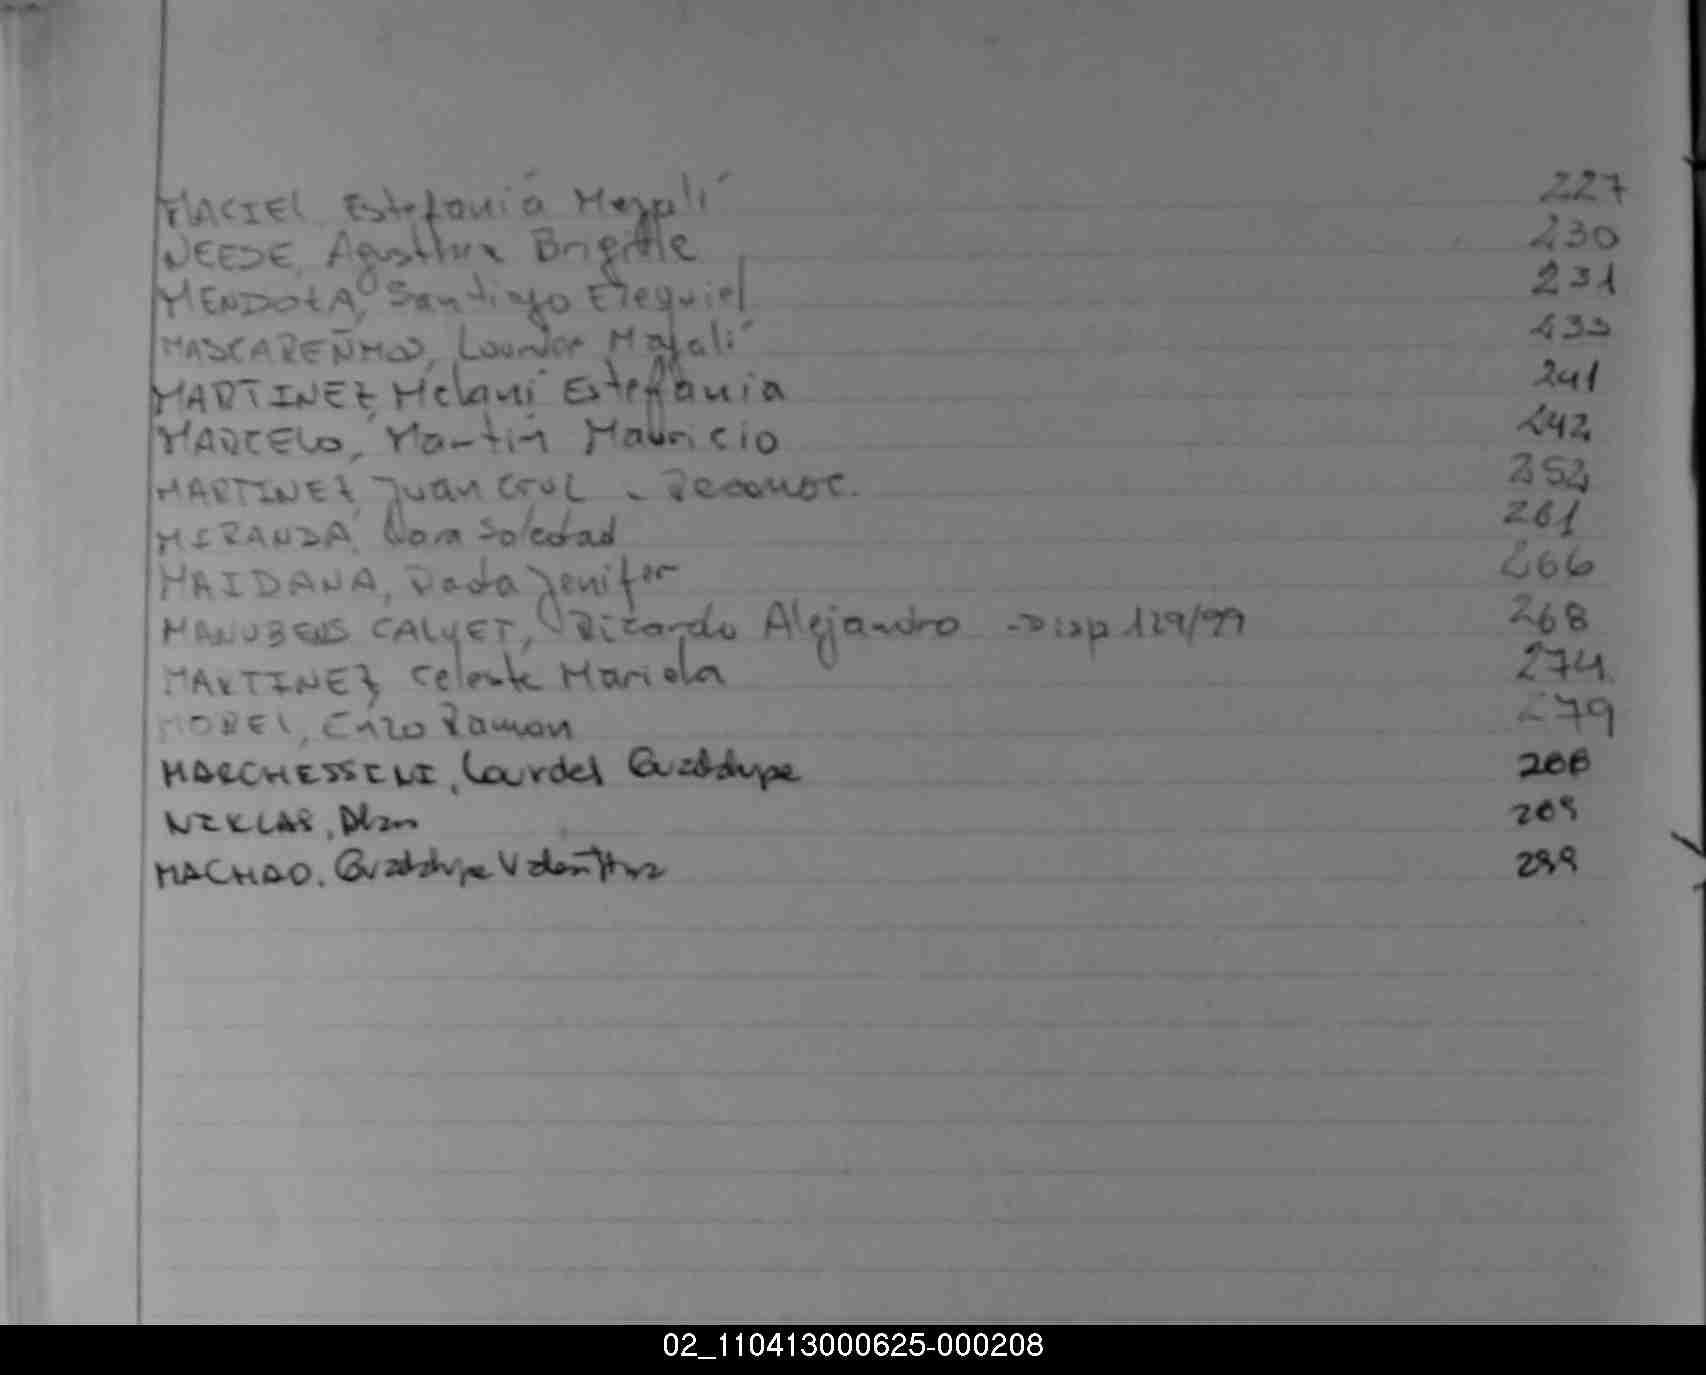 MACIEL Estefanía Magalí 227
NEESE, Agustina Brigitte 230
MENDOZA, Santiago Ezequiel 231
MASCAREÑAS, Lourdes Magalí 233
MARTINEZ, Melani Estefania 241
MARCELO, Martín Mauricio 242
MARTINEZ, Juan Cruz - Reconoc. 252
MIRANDA, Soledad 261
MAIDANA, Jenifer 266
MANUBENS CALVET, Ricardo Alejandro - Disp 129/99 268
MARTINEZ, Celeste Mariela 274
MOREL, Enzo Ramon 279
MARCHESSINI, Lourdes Guadalupe
NIKLAS, Alan
MACHADO, Guadalupe Valentina 299
02_110413000625-000208